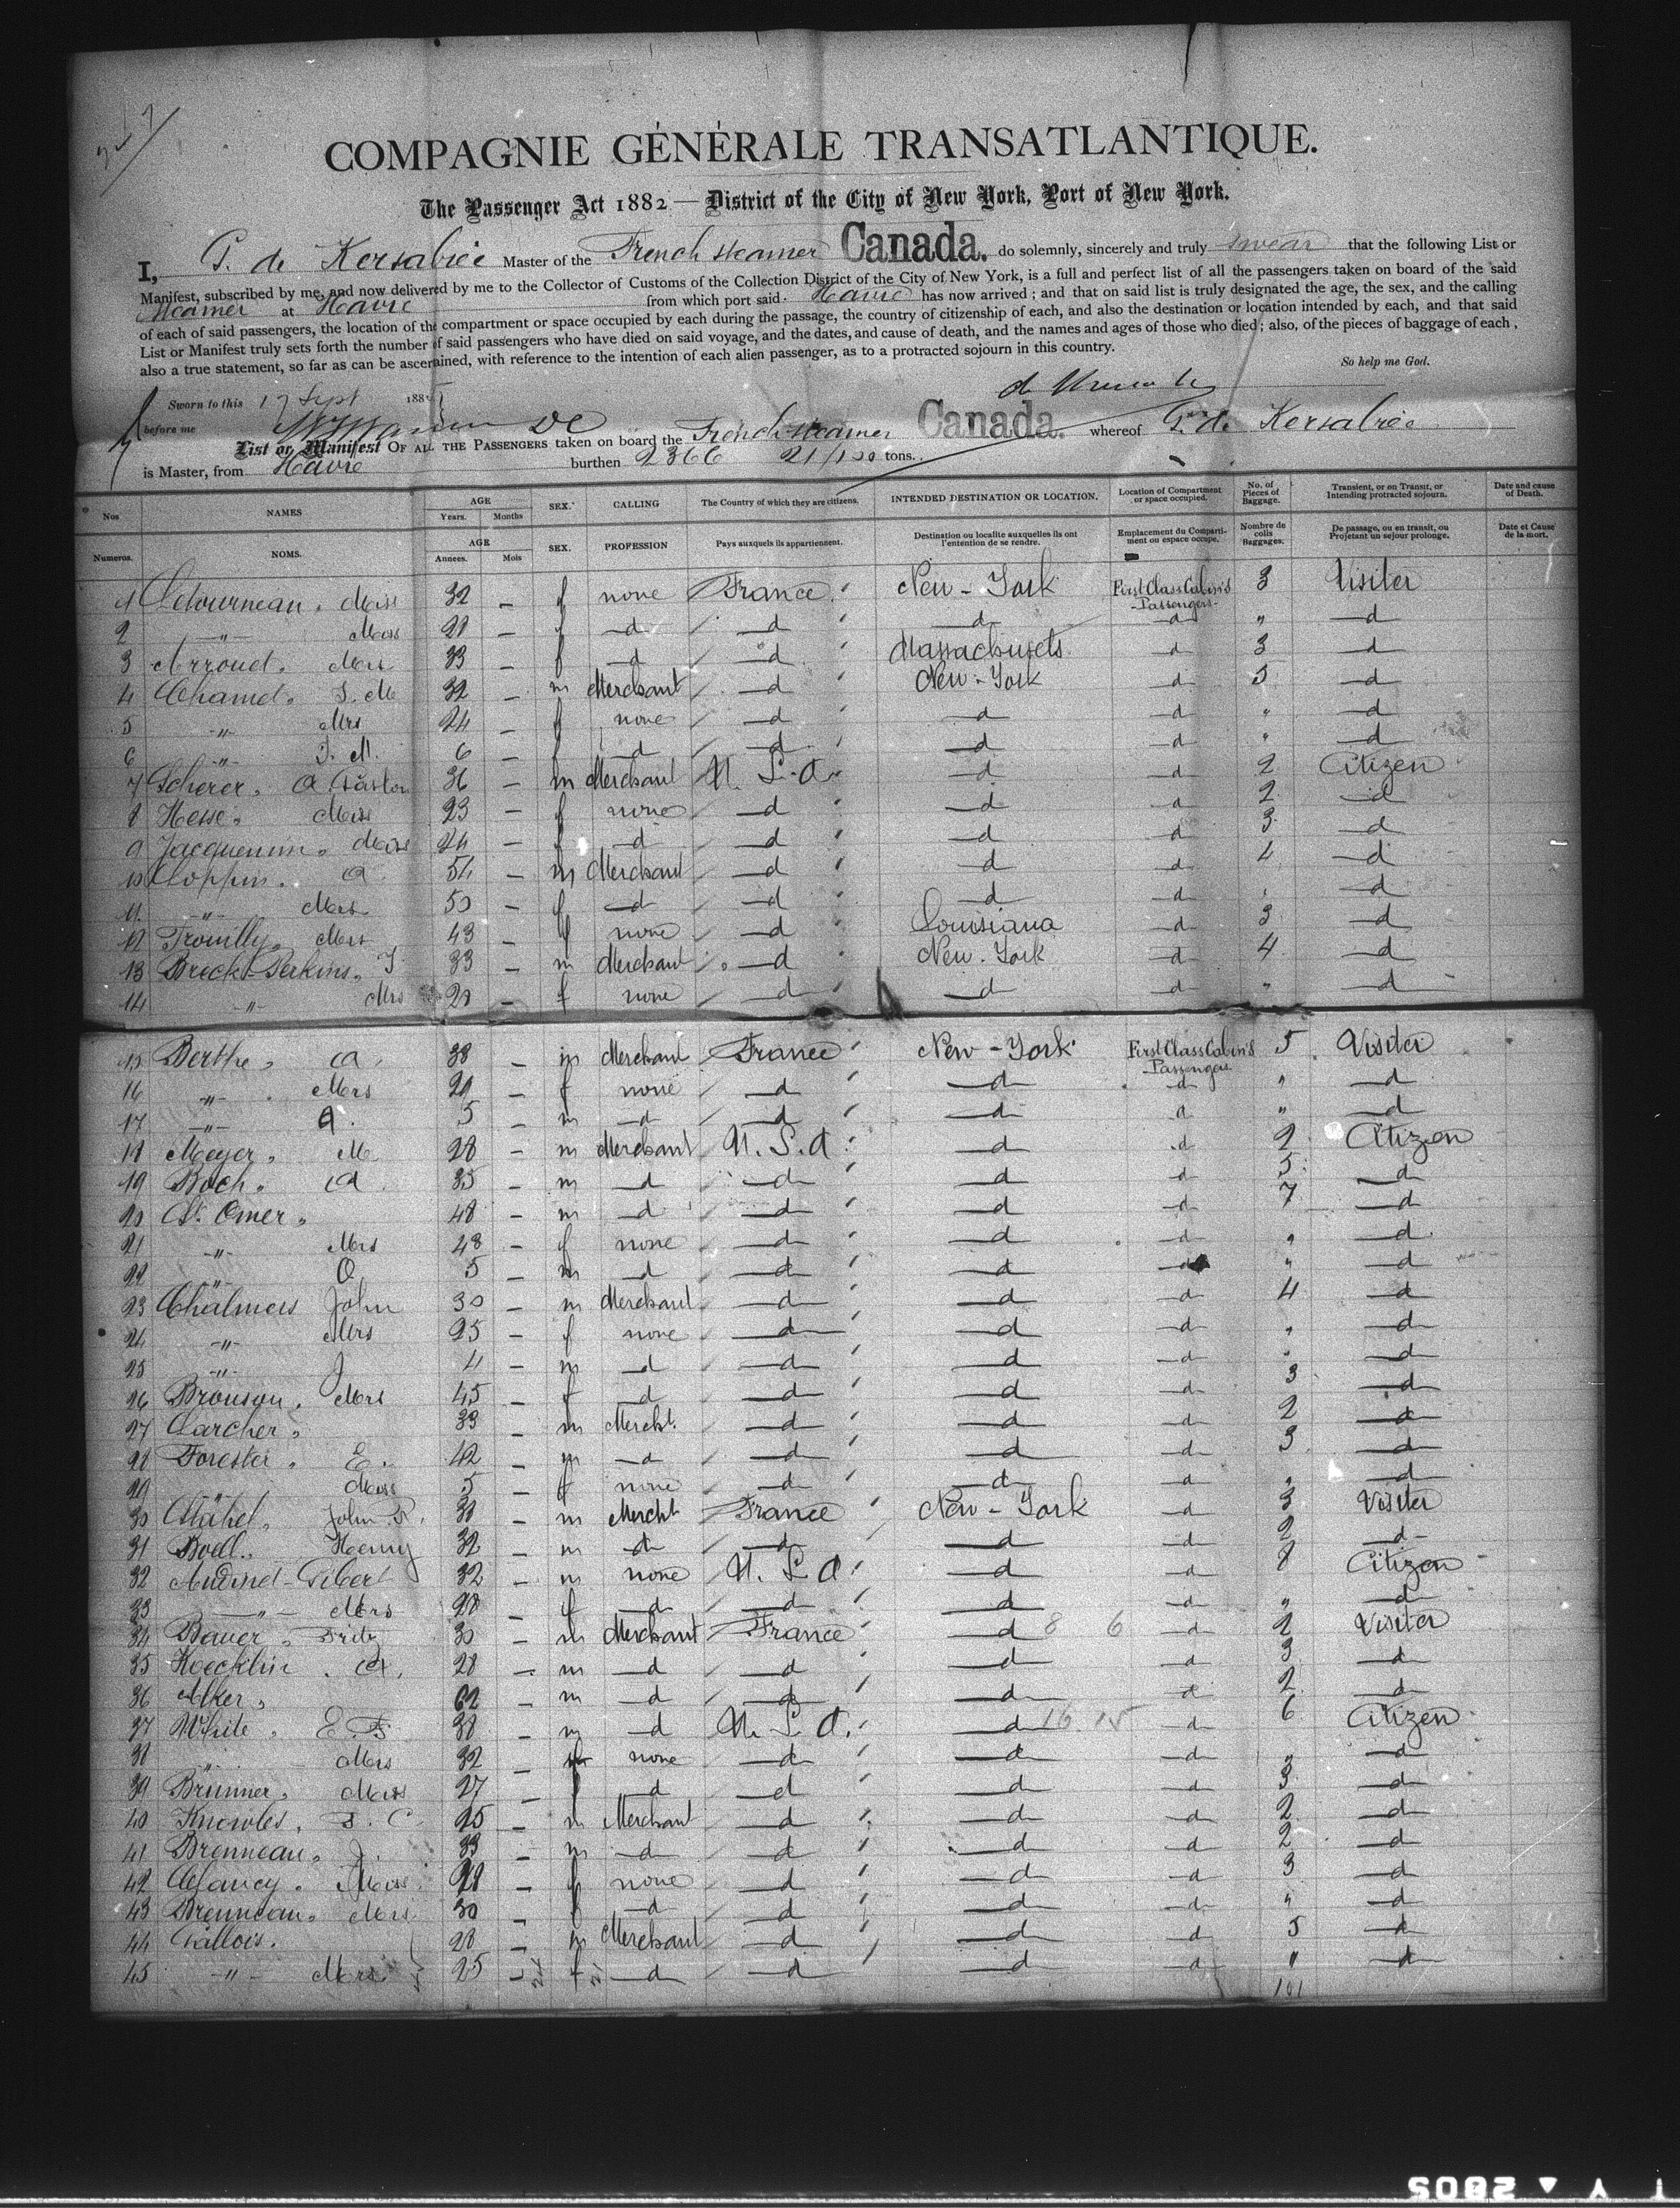 COMPAGNIE GÉNÉRALE TRANSATLANTIQUE.
The Passenger Act 1882 — District of the City of New York, Port of New York.
I, P. de Kersabiec Master of the French steamer Canada. do solemnly, sincerely and truly swear that the following List or
Manifest, subscribed by me, and now delivered by me to the Collector of Customs of the Collection District of the City of New York, is a full and perfect list of all the passengers taken on board of the said
Steamer at Havre from which port said Havre has now arrived ; and that on said list is truly designated the age, the sex, and the calling
of each of said passengers, the location of the compartment or space occupied by each during the passage, the country of citizenship of each, and also the destination or location intended by each, and that said
List or Manifest truly sets forth the number of said passengers who have died on said voyage, and the dates, and cause of death, and the names and ages of those who died ; also, of the pieces of baggage of each ,
also a true statement, so far as can be ascertained, with reference to the intention of each alien passenger, as to a protracted sojourn in this country.
So help me God.
Sworn to this 17 Sept 1885
before me
List or Manifest OF ALL THE PASSENGERS taken on board the French steamer Canada. whereof P. de Kersabiec
is Master, from Havre burthen 2366 21/100 tons.
Nos NAMES AGE Years. Months SEX. CALLING The Country of which they are citizens. INTENDED DESTINATION OR LOCATION. Location of Compartment or space occupied. No. of Pieces of Baggage. Transient, or on Transit, or Intending protracted sojourn. Date and cause of Death.
Numeros. NOMS. AGE Annees. Mois SEX. PROFESSION Pays auxquels ils appartiennent. Destination ou localite auxquelles ils ont l'entention de se rendre. Emplacement du Compartiment ou espace occupe. Nombre de colis Baggages. De passage, ou en transit, ou Projetant un sejour prolonge. Date et Cause de la mort.
1 Letourneau. Miss 32 — f none France New-York First Class Cabin's Passengers 3 Visiter
2 —"— Miss 28 — f —d —d —d —d " —d
3 Arroud. Mrs 33 — f —d —d Massachusets —d 3 —d
4 Chamet. J. M 32 — m Merchant —d New-York —d 5 —d
5 —"— Mrs 24 — f none —d —d —d " —d
6 —"— J. M. 6 — f —d —d —d —d " —d
7 Scherer. A. Gaston 36 — m Merchant U. S. A. —d —d 2 Citizen
8 Hesse. Miss 23 — f none —d —d —d 2 —d
9 Jacquemin. Miss 24 — f —d —d —d —d 3 —d
10 Coppin. A 54 — m Merchant —d —d —d 4 —d
11 —"— Mrs 50 — f —d —d —d —d " —d
12 Trouilly. Mrs 43 — f none —d Louisiana —d 3 —d
13 Breck-Perkins. J 33 — m Merchant —d New-York —d 4 —d
14 —"— Mrs 28 — f none —d —d —d " —d
15 Berthe. A. 38 — m Merchant France New-York First Class Cabin's Passengers 5 Visiter
16 —"— Mrs 29 — f none —d —d —d " —d
17 —"— A. 5 — m —d —d —d d " —d
18 Meyer. M 28 — m Merchant U. S. A. —d —d 2 Citizen
19 Boch. A 35 — m —d —d —d —d 5 —d
20 St. Omer. 48 — m —d —d —d —d 7 —d
21 —"— Mrs 48 — f none —d —d —d " —d
22 —"— O 5 — m —d —d —d —d " —d
23 Chalmers John 30 — m Merchant —d —d —d 4 —d
24 —"— Mrs 25 — f none —d —d —d " —d
25 —"— J 4 — m —d —d —d —d " —d
26 Bronson. Mrs 45 — f —d —d —d —d 3 —d
27 Larcher. 33 — m Mercht. —d —d —d 2 —d
28 Forester. E. 42 — m —d —d —d —d 3 —d
29 —"— Miss 5 — f none —d —d —d " —d
30 Stahel. John R. 38 — m Mercht France New-York —d 3 Visiter
31 Boell. Henry 32 — m —d —d —d —d 2 —d
32 Audinet-Gibert 32 — m none U. S. A. —d —d 8 Citizen
33 —"— Mrs 28 — f —d —d —d —d " —d
34 Bauer. Fritz 30 — m Merchant France —d 8 6 —d 2 Visiter
35 Koecklin. A. 28 — m —d —d —d —d 3 —d
36 Alker. 62 — m —d —d —d —d 2 —d
37 White. E. F. 38 — m —d U. S. A. —d 16 15 —d 6 Citizen
38 —"— Mrs 32 — f none —d —d —d " —d
39 Brunner. Miss 27 — f —d —d —d —d 3 —d
40 Knowles. F. C. 25 — m Merchant —d —d —d 2 —d
41 Brenneau. J. 33 — m —d —d —d —d 2 —d
42 Miss 28 — f none —d —d —d 3 —d
43 Brenneau. Mrs 30 — f —d —d —d —d " —d
44 Gallois. 28 — m Merchant —d —d —d 5 —d
45 —"— Mrs 25 — f —d —d —d —d " —d
101